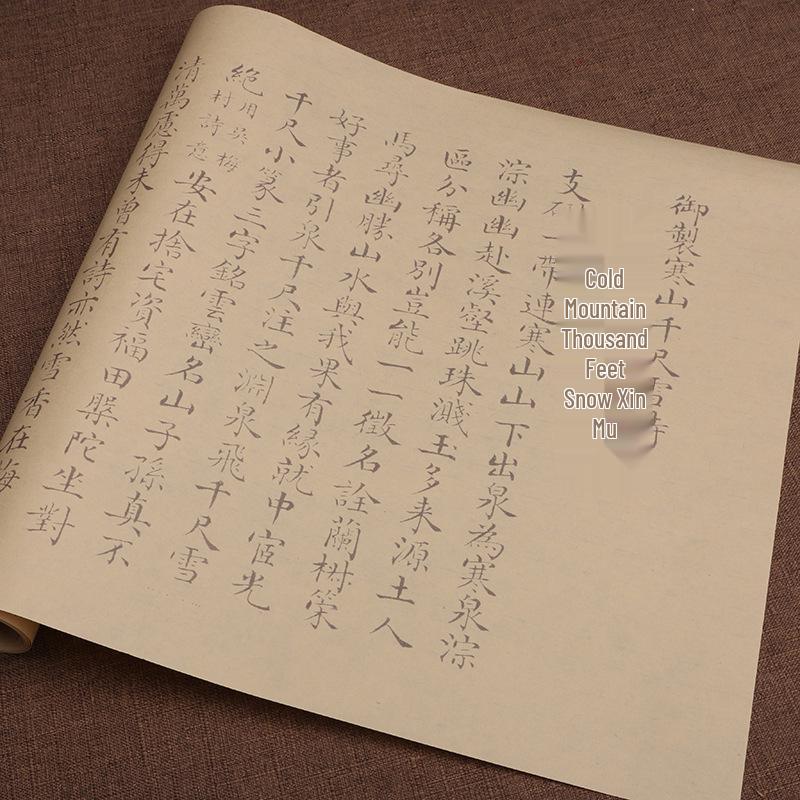 御製寒山千尺雪詩
支硎一帶連寒山山下出泉為寒泉淙
淙幽幽赴溪壑跳珠濺玉多来源土人
區分稱各別豈能一一徵名詮蘭樹策
馬尋幽勝山水與我果有緣就中宧光
好事者引泉千尺注之淵泉飛千尺雪
千尺小篆三字銘雲巒名山子孫真不
絶用吳梅村詩意安在捨宅資福田槃陀坐對
清萬慮得未曾有詩亦然雪香在梅
Cold
Mountain
Thousand
Feet
Snow Xin
Mu